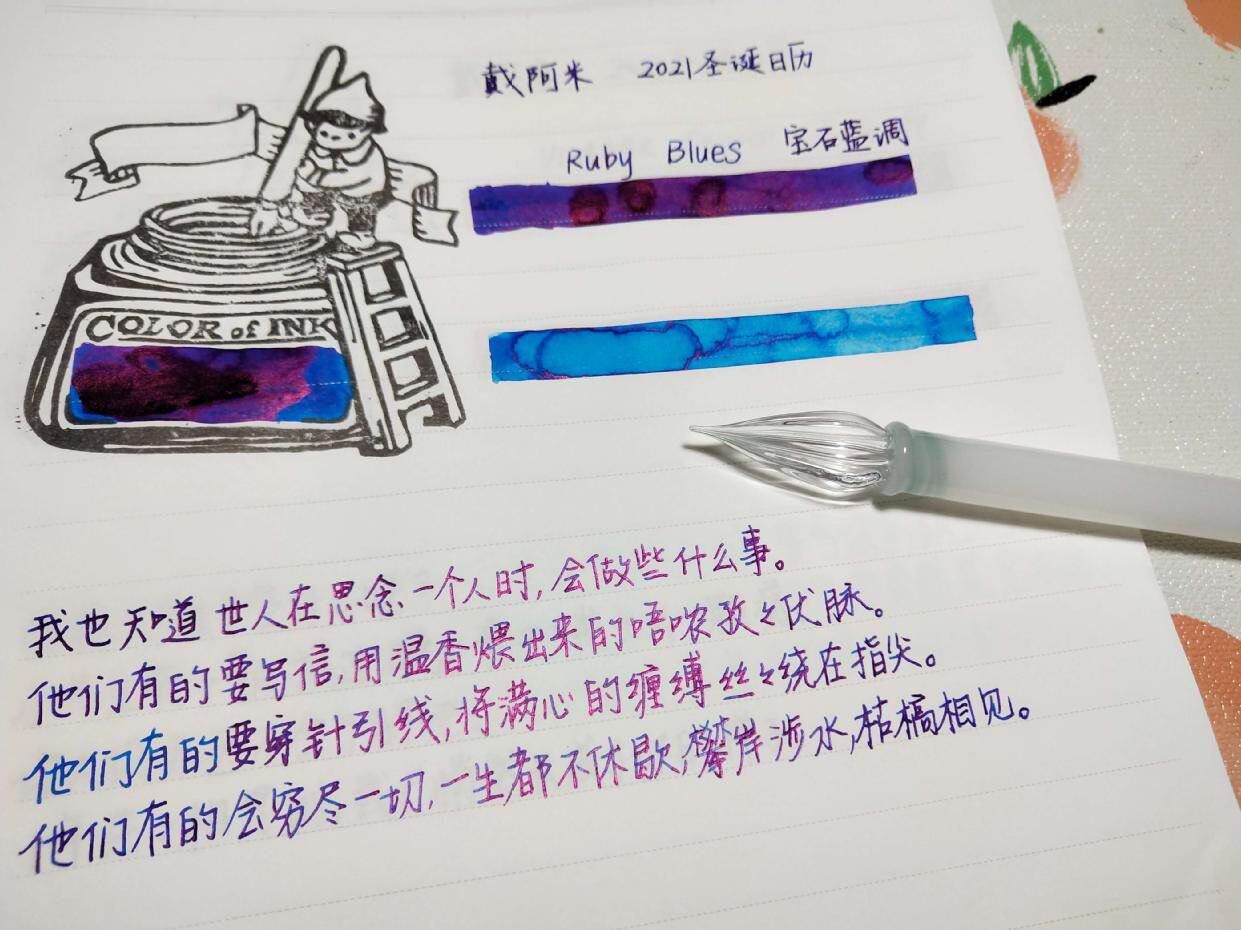 戴阿米 2021圣诞日历
Ruby Blues 宝石蓝调
COLOR of INK
我也知道世人在思念一个人时,会做些什么事。
他们有的要写信,用温香煨出来的唔哝孜々伏脉。
他们有的要穿针引线,将满心的缠缚丝々绕在指尖。
他们有的会穷尽一切,一生都不休歇,攀岸涉水,枯槁相见。